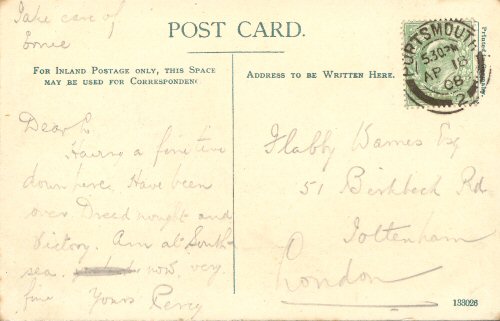 Take care of
Ernie
POST CARD.
FOR INLAND POSTAGE ONLY, THIS SPACE
MAY BE USED FOR CORRESPONDENC
ADDRESS TO BE WRITTEN HERE.
PORTSMOUTH
5.30PM
AP 18
08
2
Dear
Having a fine time
down here. Have been
over Dreednought and
Victory. Am at South-
sea. now. very
fine Yours Percy
Flabby Barnes Esq
51 Birkbeck Rd.
Tottenham
London
133026